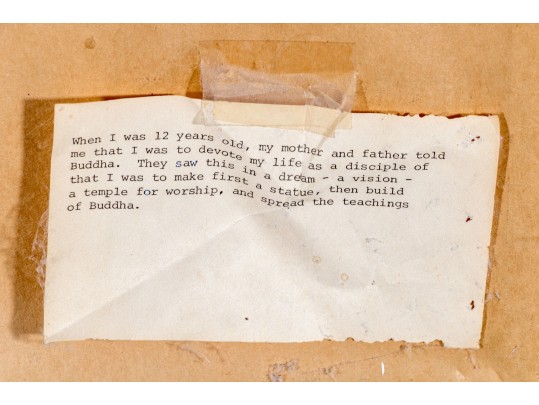 When I was 12 years old, my mother and father told
me that I was to devote my life as a disciple of
Buddha.  They saw this in a dream - a vision -
that I was to make first a statue, then build
a temple for worship, and spread the teachings
of Buddha.